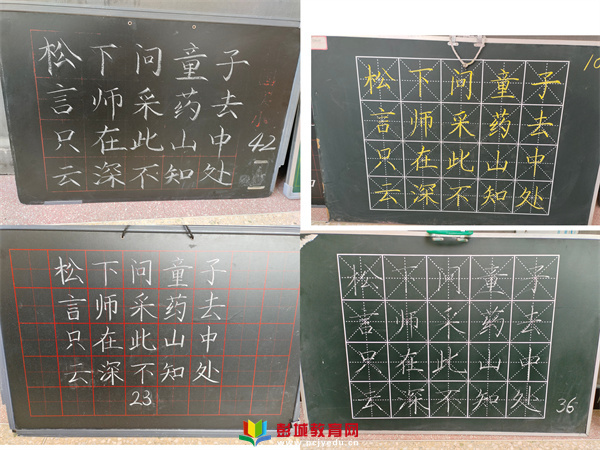 松下问童子
言师采药去
只在此山中
云深不知处
42
松下问童子
言师采药去
只在此山中
云深不知处
10
松下问童子
言师采药去
只在此山中
云深不知处
23
松下问童子
言师采药去
只在此山中
云深不知处
36
彭城教育网